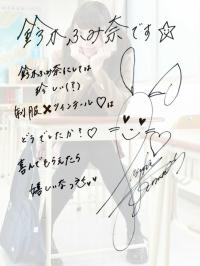 鈴木ふみ奈です☆
鈴木ふみ奈にしては
珍しい(?)
制服×ツインテール♡は
どうでしたか?♡
喜んでもらえたら
嬉しいなっ